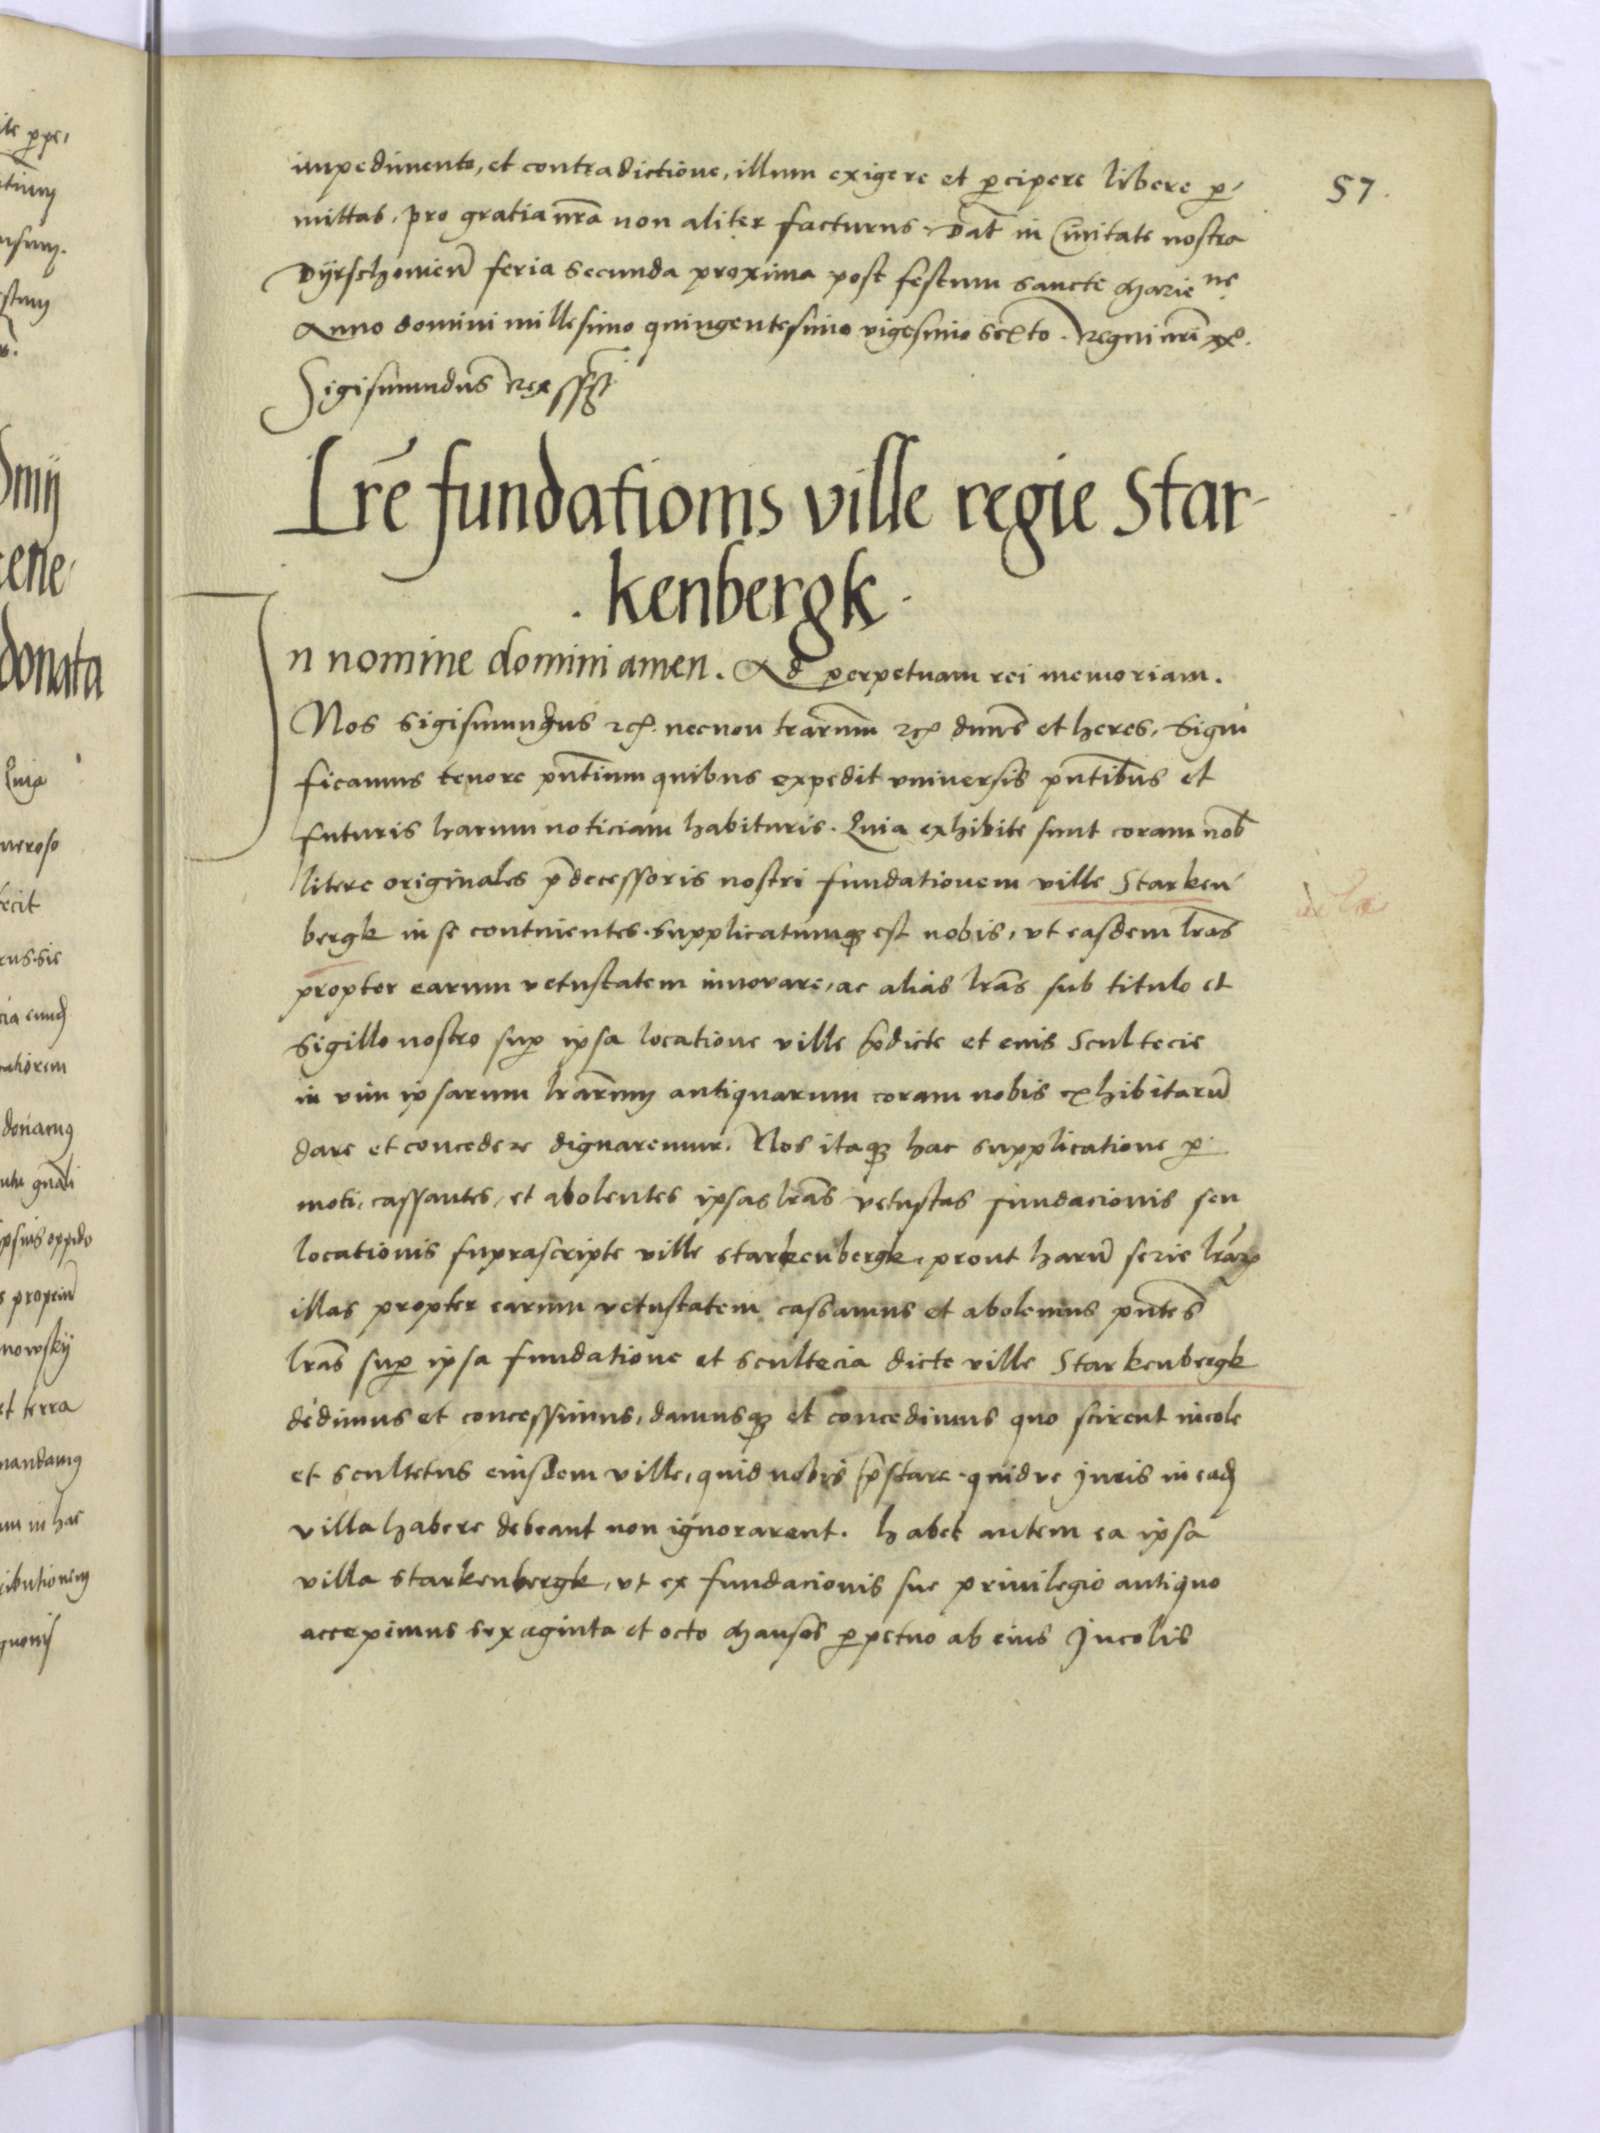 57.
impedimento, et contradictione, illum exigere et p̱cipere libere p̱-
mittas, pro gratia nr̃a non aliter facturus. Dat̃ in Ciuitate nostra
Dyrschouien̄ feria secunda proxima post festum sancte Marie
Anno domini millesimo quingentesimo vigesimo sexto. Regni nr̃i xxº.
Sigismundus Rex sst.
Lr̃e fundationis ville regie Star-
. kenbergk .
In nomine domini amen. Ad perpetuam rei memoriam.
Nos Sigismundus etc. necnon trarum̃ etc. dnn̄s et heres. Signi
ficamus tenore pn̄tium quibus expedit vniversis pn̄tibus et
futuris harum noticiam habituris. Quia exhibite sunt coram nob̃
litere originales p̄decessoris nostri fundationem ville Starken
bergk in se continentes. supplicatumqꝫ est nobis, vt easdem lr̃as
propter earum vetustatem innovare, ac alias lr̃as sub titulo et
sigillo nostro sup̱ ipsa locatione ville p̄dicte et eius Scultecie
in vim ipsarum lr̃arum antiquarum coram nobis exhibitarū
dare et concedere dignaremur. Nos itaqꝫ hac supplicatione p̱
moti, cassantes, et abolentes ipsas lr̃as vetustas fundacionis seu
locationis suprascripte ville starkenbergk, prout harū serie lr̃aꝝ
illas propter earum vetustatem cassamus et abolemus pn̄tes
lr̃as sup̱ ipsa fundatione et scultecia dicte ville Starkenbergk
dedimus et concessimus, damusqꝫ et concedimus quo scirent incole
et scultetus eiusdem ville, quid nobis p̄stare. quid ve Juris in eadꝫ
villa habere debeant non ignorarent. habet autem ea ipsa
villa starkenbergk, vt ex fundacionis sue priuilegio antiquo
accepimus sexaginta et octo Mansos p̱petuo ab eius Jncolis